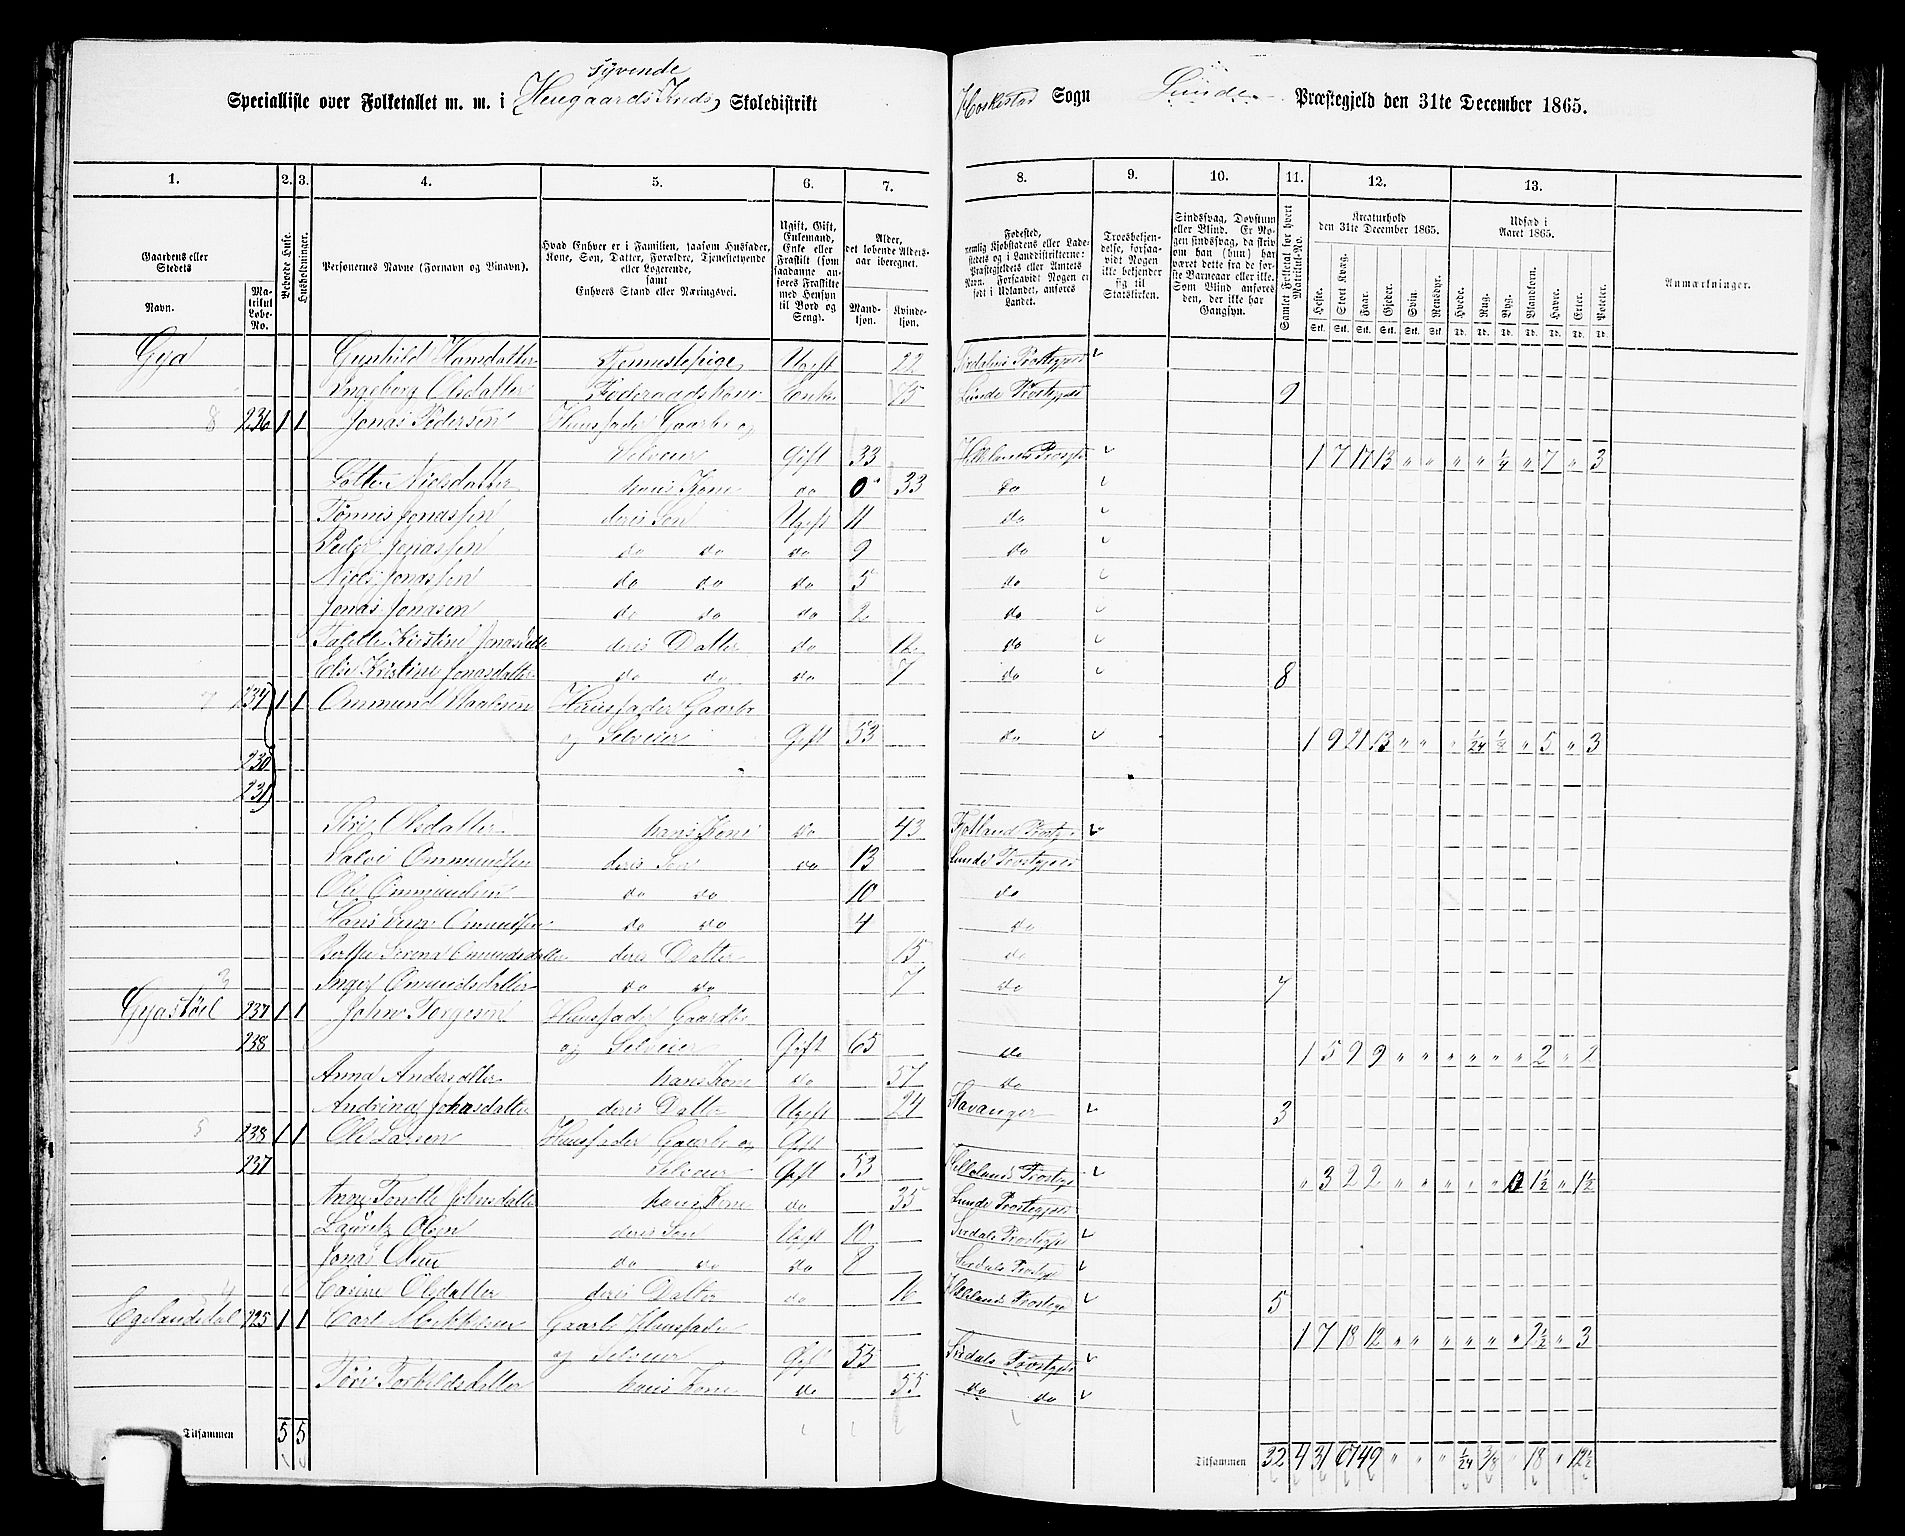 syvende
Specialliste over Folketallet m. m. i Heugaards Kreds Skoledistrikt
Heskestad Sogn Lunde Præstegjeld den 31te December 1865.
1. 2. 3. 4. 5. 6. 7. 8. 9. 10. 11. 12. 13.
Gaardens eller Stedets
Navn.
Matrikul Løbe-No.
Beboede Huse.
Husholdninger.
Personernes Navne (Fornavn og Tilnavn).
Hvad Enhver er i Familien, saasom Husfader, Kone, Søn, Datter, Forældre, Tjenestetyende eller Logerende, samt Enhvers Stand eller Næringsvei.
Ugift, Gift, Enkemand, Enke eller Fraskilt (som saadanne anføres Fraskilte med Hensyn til Bord og Seng).
Alder, det løbende Alders-aar iberegnet.
Mandkjøn.
Kvindekjøn.
Fødested, nemlig Kjøbstadens eller Ladestedets og i Landdistrikterne: Præstegjeldets eller Amtets Navn. Forsaavidt Nogen er født i Udlandet, anføres Landet.
Troesbekjendelse, forsaavidt Nogen ikke bekjender sig til Statskirken.
Sindssvag, Døvstum eller Blind. Er Nogen sindssvag, da skriv om han (hun) har været dette fra de første Barneaar eller ikke. Som Blind anføres den, der ikke har Gangsyn.
Samlet Folketal for hvert Matrikul-No.
Kreaturhold den 31te December 1865.
Heste. Stort Kvæg. Faar. Gjeder. Svin. Rensdyr.
Udsæd i Aaret 1865.
Hvede. Rug. Byg. Blandkorn. Havre. Erter. Poteter.
Stk. Stk. Stk. Stk. Stk. Stk. Td. Td. Td. Td. Td. Td. Td.
Anmærkninger.
Gya Gunhild Hansdatter Tjennestepige Ugift 22 Sirdalens Præstegjeld
Ingeborg Olsdatter Føderaadskone Enke 75 Lunde Præstegjeld 9
8 236 1 1 Jonas Pedersen Huusfader Gaardbr og
Selveier Gift 33 Hellelands Præstgd 1 7 17 13 " " " " 1/4 " 7 " 3
Nielsdatter hans Kone do 0 33 do
Tønnes Jonassen deres Søn Ugift 11 do
Peder Jonassen do do do 9 do
Niels Jonassen do do do 5 do
Jonas Jonasen do do do 2 do
Kirstine Jonasdatter deres Datter do 12 do
Else Kristine Jonasdatter do do do 7 do 8
7 234 1 1 Ommund Huusfader Gaardbr
og Selveier Gift 53 do 1 9 21 13 " " " 1/24 1/2 " 5 " 3
230
231
Siri Olsdatter hans Kone do 43 Fjotland Præstg
Salve Ommundsen deres Søn do 13 Lunde Præstegjeld
Ole Ommundsen do do 10 do
Hans Ommundsen do do 4 do
Berthe Serena Omundsdatter deres Datter 15 do
Inger Omundsdatter do do 7 do 7
3
Gyastøel 237 1 1 John Torgesen Huusfader Gaardbr
238 og Selveier Gift 65 do 1 5 9 9 " " " " " " 2 " 2
Anna Andersdatter hans Kone do 57 do
Andrina Johnsdatter deres Datter Ugift 24 Stavanger 3
5 238 1 1 Ole Larsen Huusfader Gaardbr og Gift
237 Selveier Gift 53 Hellelands Præstegd " 3 22 " " " " " 1 1/2 " 1 1/2
Anne Johnsdatter hans Kone do 35 Lunde Præstegjeld
Lauritz Olsen deres Søn Ugift 10 Sirdals Præstegjeld
Jonas Olsen do do do 8 Sirdals Præstegd
4 Carine Olsdatter deres Datter do 16 Hellelands Præstegd 5
Egelandsdal 225 1 1 Carl Gaardbr Huusfader 1 7 18 12 " " " " " " 2 1/2 " 3
og Selveier Gift 53 Sirdals Præstegjd
Torkildsdatter hans Kone do 55 do do
Tilsammen 5 5
Tilsammen 32 4 31 67 49 " " " 1/24 3/8 " 18 " 12 1/2